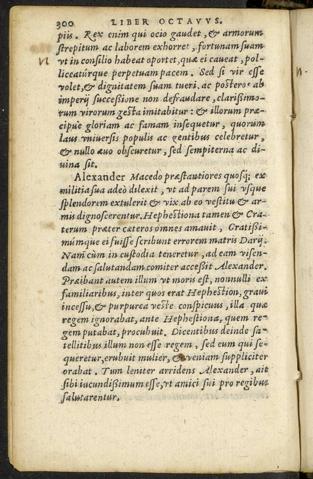 300 LIBER OCTAVVS.
piis. Rex enim qui ocio gaudet, & armorum
strepitum ac laborem exhorret, fortunam suam
vt in consilio habeat oportet, quæ ei caueat, pol-
liceatúrque perpetuam pacem. Sed si vir esse
volet, & dignitatem suam tueri, ac posteros ab
imperij successione non defraudare, clarissimo-
rum virorum gesta imitabitur: & illorum præ-
cipuè gloriam ac famam insequetur, quorum
laus vniuersis populis ac gentibus celebretur,
& nullo æuo obscuretur, sed sempiterna ac di-
uina sit.
Alexander Macedo præstantiores quosq; ex
militia sua adeò dilexit, vt ad parem sui vsque
splendorem extulerit & vix ab eo vestitu & ar-
mis dignoscerentur. Hephestiona tamen & Cra-
terum præter cæteros omnes amauit, Gratissi-
múmque ei fuisse scribunt errorem matris Darij.
Nam cùm in custodia teneretur, ad eam visen-
dam ac salutandam comiter accessit Alexander.
Præibant autem illum vt moris est, nonnulli ex
familiaribus, inter quos erat Hephestion, graui
incessu, & purpurea veste conspicuus, illa quæ
regem ignorabat, ante Hephestiona, quem re-
gem putabat, procubuit. Dicentibus deinde sa-
tellitibus illum non esse regem, sed eum qui se-
queretur, erubuit mulier, & veniam suppliciter
orabat. Tum leniter arridens Alexander, ait
sibi iucundissimum esse, vt amici sui pro regibus
salutarentur.